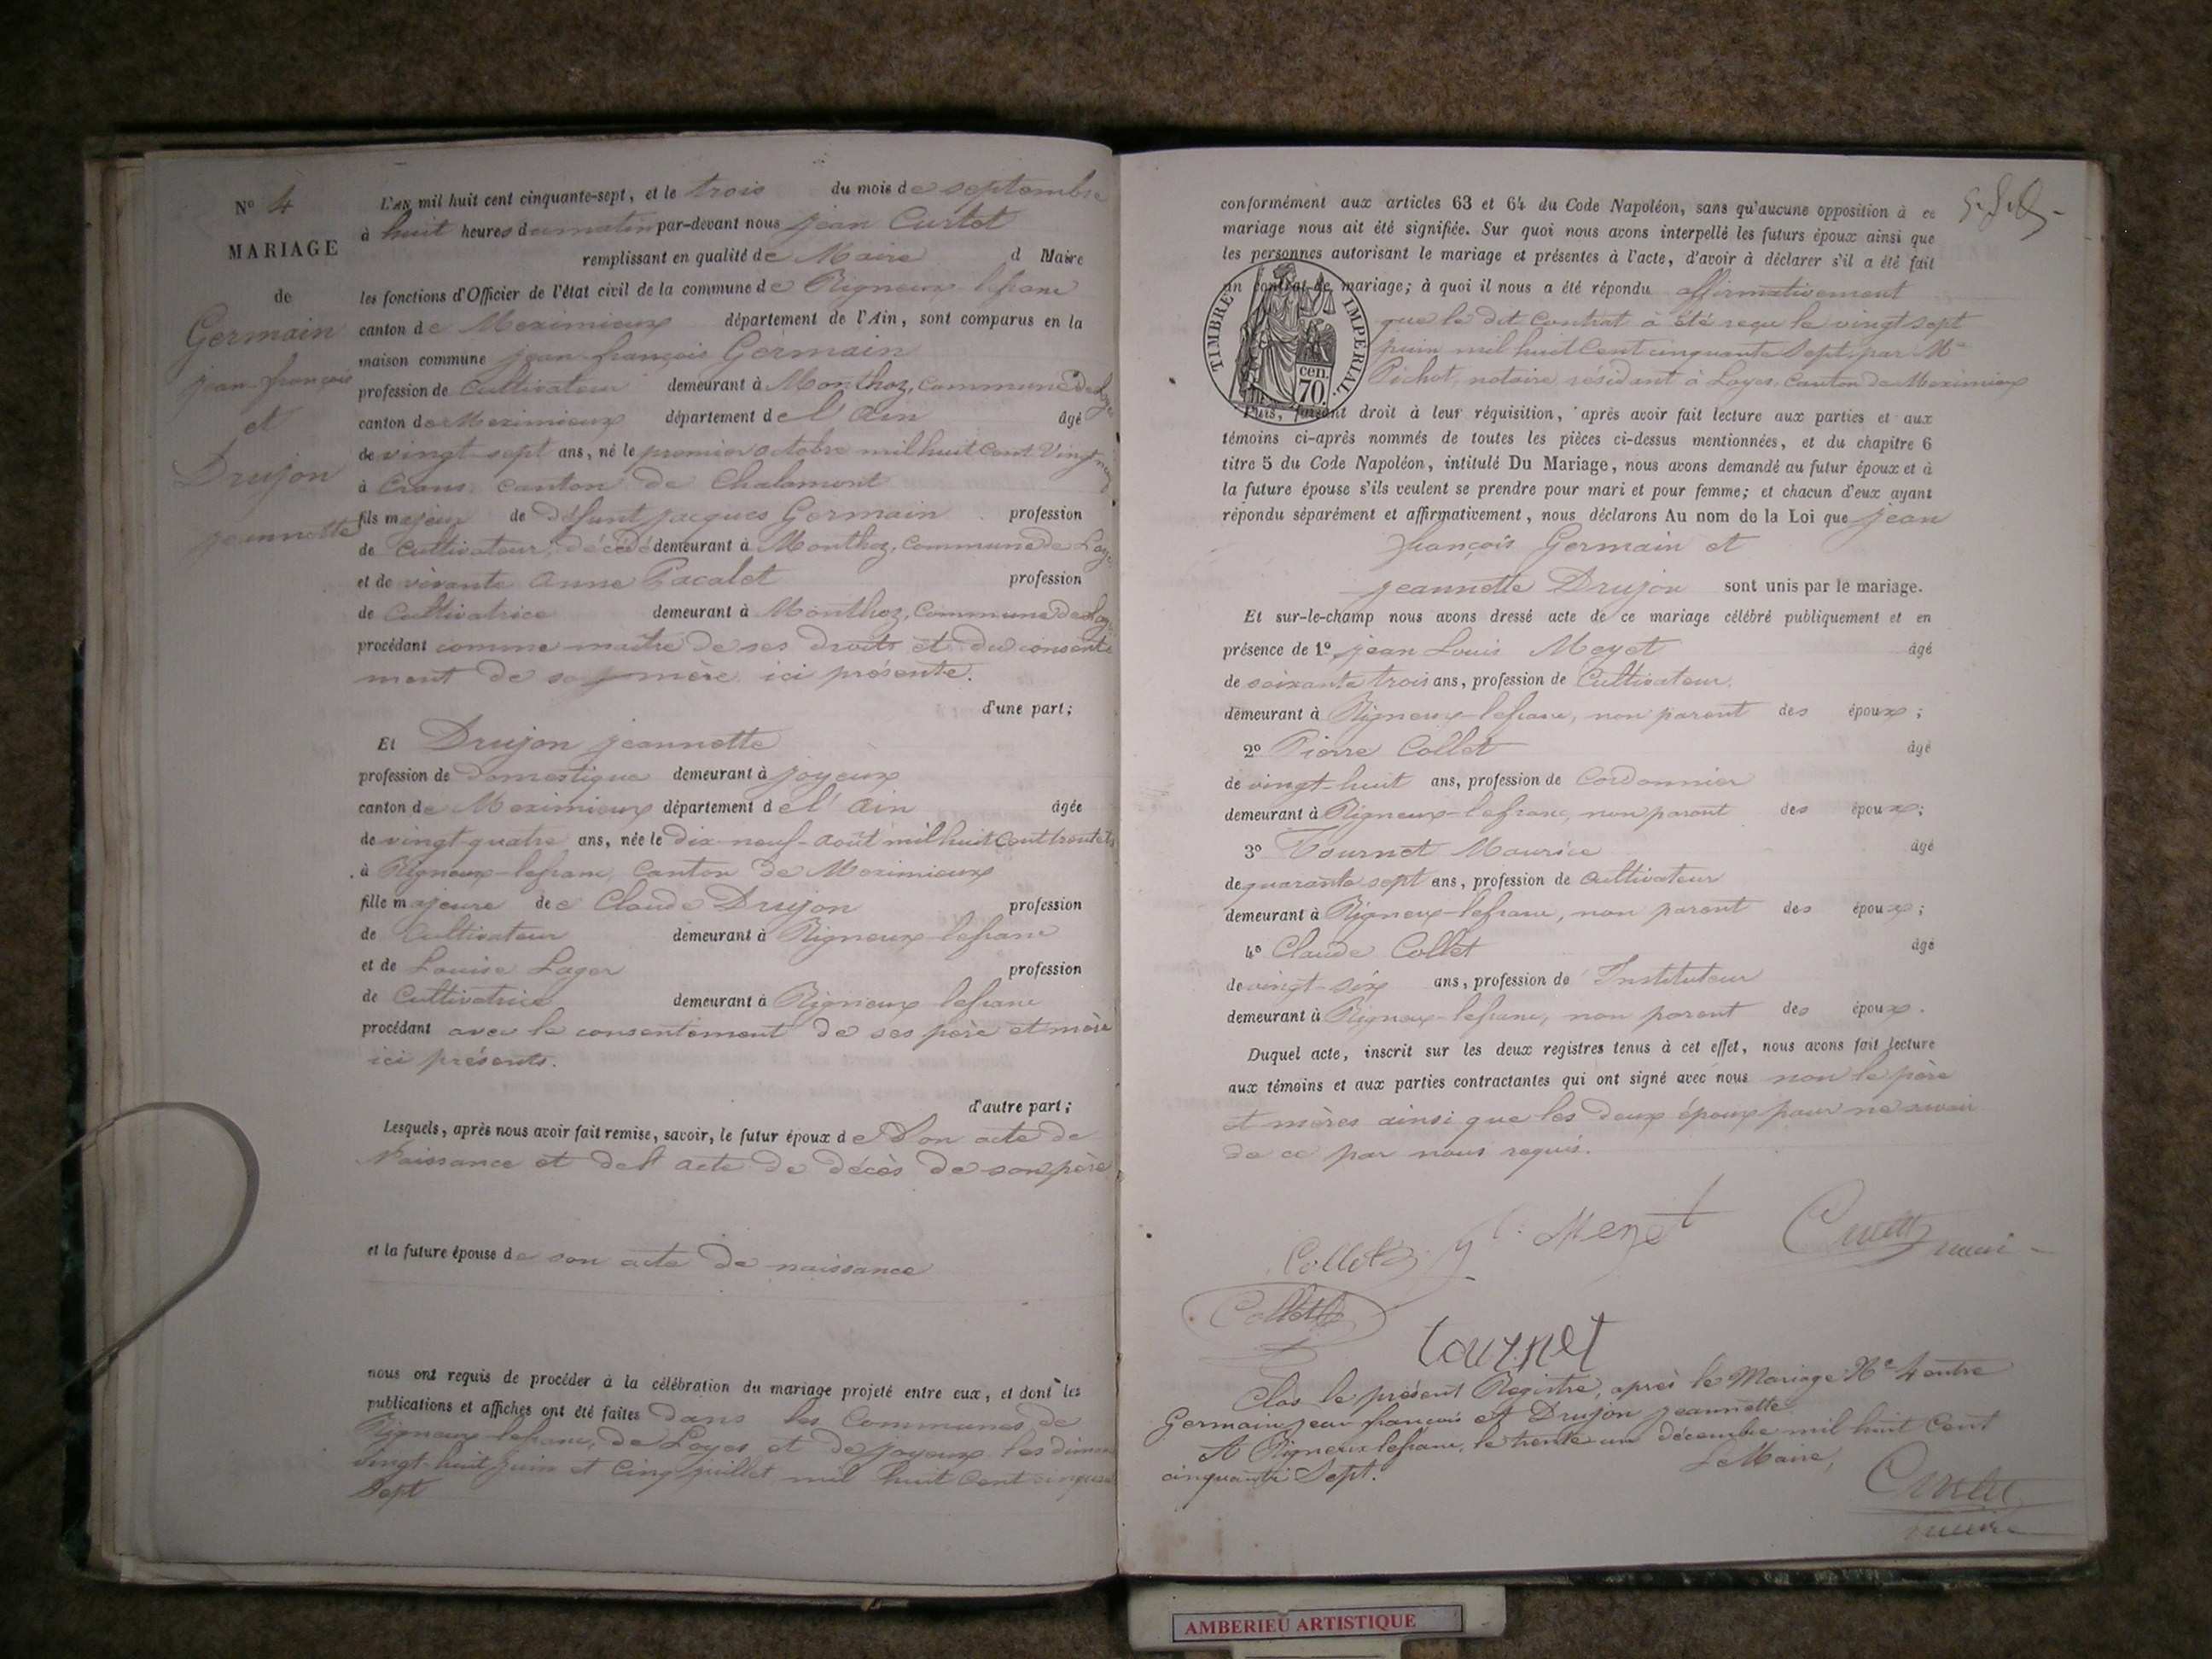 N° 4
MARIAGE
de
Germain
jean-françois
et
Drujon
jeannette
L'AN mil huit cent cinquante-sept, et le trois du mois de septembre
à huit heures du matin par-devant nous jean Curtet
remplissant en qualité de Maire d Maire
les fonctions d'Officier de l'état civil de la commune de Rigneux-lefranc
canton de Meximieux département de l'Ain, sont comparus en la
maison commune jean-françois Germain
profession de Cultivateur demeurant à Monthoz, Commune de Loyes
canton de Meximieux département de l'Ain âgé
de vingt-sept ans, né le premier octobre mil huit Cent Vingt neuf
à Crans, canton de Chalamont
fils majeur de Défunt jacques Germain profession
de Cultivateur, décédé demeurant à Monthoz, Commune de Loyes
et de vivante Anne Pacalet profession
de Cultivatrice demeurant à Monthoz, Commune de Loyes
procédant comme maître de ses droits et du consente
ment de sa mère ici présente.
d'une part;
Et Drujon jeannette
profession de Domestique demeurant à joyeux
canton de Meximieux département de l'Ain âgée
de vingt-quatre ans, née le Dix-neuf-Août mil huit Cent trente
à Rigneux-lefranc, Canton de Meximieux
fille majeure de Claude Drujon profession
de Cultivateur demeurant à Rigneux-lefranc
et de Louise Lager profession
de Cultivatrice demeurant à Rigneux lefranc
procédant avec le consentement de ses père et mère
ici présents.
d'autre part;
Lesquels, après nous avoir fait remise, savoir, le futur époux de Son acte de
Naissance et de l'acte de décès de son père
et la future épouse de son acte de naissance
nous ont requis de procéder à la célébration du mariage projeté entre eux, et dont les
publications et affiches ont été faites dans les Communes de
Rigneux-lefranc, de Loyes et de joyeux les diman
vingt-huit juin et Cinq juillet mil huit Cent cinquante
Sept
conformément aux articles 63 et 64 du Code Napoléon, sans qu'aucune opposition à ce
mariage nous ait été signifiée. Sur quoi nous avons interpellé les futurs époux ainsi que
les personnes autorisant le mariage et présentes à l'acte, d'avoir à déclarer s'il a été fait
un contrat de mariage; à quoi il nous a été répondu affirmativement
que le dit Contrat à été reçu le vingt sept
juin mil huit Cent cinquante Sept, par Me
Pichot, notaire résidant à Loyes, Canton de Meximieux
TIMBRE IMPERIAL.
cen.
70.
Puis, faisant droit à leur réquisition, après avoir fait lecture aux parties et aux
témoins ci-après nommés de toutes les pièces ci-dessus mentionnées, et du chapitre 6
titre 5 du Code Napoléon, intitulé Du Mariage, nous avons demandé au futur époux et à
la future épouse s'ils veulent se prendre pour mari et pour femme; et chacun d'eux ayant
répondu séparément et affirmativement, nous déclarons Au nom de la Loi que jean
françois Germain et
jeannette Drujon sont unis par le mariage.
Et sur-le-champ nous avons dressé acte de ce mariage célébré publiquement et en
présence de 1° jean Louis Meyet âgé
de soixante trois ans, profession de Cultivateur
demeurant à Rigneux-lefranc, non parent des époux;
2° Pierre Collet âgé
de vingt-huit ans, profession de Cordonnier
demeurant à Rigneux-lefranc, non parent des époux;
3° Tournet Maurice âgé
de quarante sept ans, profession de Cultivateur
demeurant à Rigneux-lefranc, non parent des époux;
4° Claude Collet âgé
de vingt-six ans, profession de Instituteur
demeurant à Rigneux-lefranc, non parent des époux.
Duquel acte, inscrit sur les deux registres tenus à cet effet, nous avons fait lecture
aux témoins et aux parties contractantes qui ont signé avec nous non le père
et mères ainsi que les deux époux pour ne savoir
de ce par nous requis.
Collet
Collet
tournet
Clos le présent Registre, après le Mariage N° 4 entre
Germain jean françois et Drujon jeannette
A Rigneux lefranc, le trente un décembre mil huit Cent
cinquante Sept. Le Maire,
Curtet
maire
AMBERIEU ARTISTIQUE